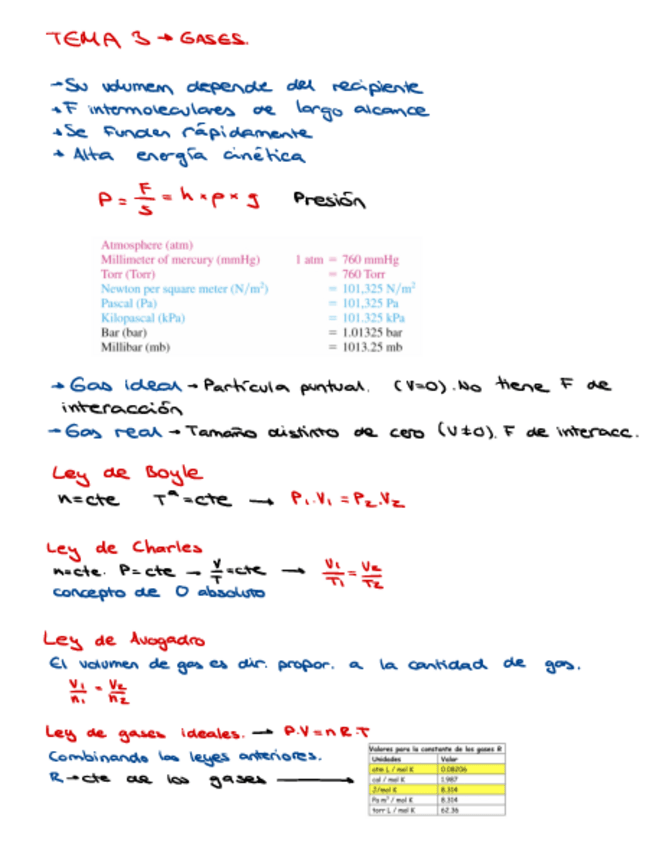 TEMA 3 → GASES.
→ Su volumen depende del recipiente
→ F intermoleculares de largo alcance
→ Se funden rápidamente
→ Alta energía cinética
P = F/S = h × ρ × g Presión
Atmosphere (atm)
Millimeter of mercury (mmHg) 1 atm = 760 mmHg
Torr (Torr) = 760 Torr
Newton per square meter (N/m²) = 101,325 N/m²
Pascal (Pa) = 101,325 Pa
Kilopascal (kPa) = 101.325 kPa
Bar (bar) = 1.01325 bar
Millibar (mb) = 1013.25 mb
→ Gas ideal → Partícula puntual. (V=0). No tiene F de
interacción
→ Gas real → Tamaño distinto de cero (V≠0). F de interacc.
Ley de Boyle
n=cte Tª=cte → P₁.V₁ = P₂.V₂
Ley de Charles
n=cte. P=cte → V/T=cte → V₁/T₁ = V₂/T₂
concepto de 0 absoluto
Ley de Avogadro
El volumen de gas es dir. propor. a la cantidad de gas.
V₁/n₁ = V₂/n₂
Ley de gases ideales. → P.V = n R.T
Combinando las leyes anteriores.
R → cte de los gases →
Valores para la constante de los gases R
Unidades Valor
atm L / mol K 0.08206
cal / mol K 1.987
J/mol K 8.314
Pa m³ / mol K 8.314
torr L / mol K 62.36